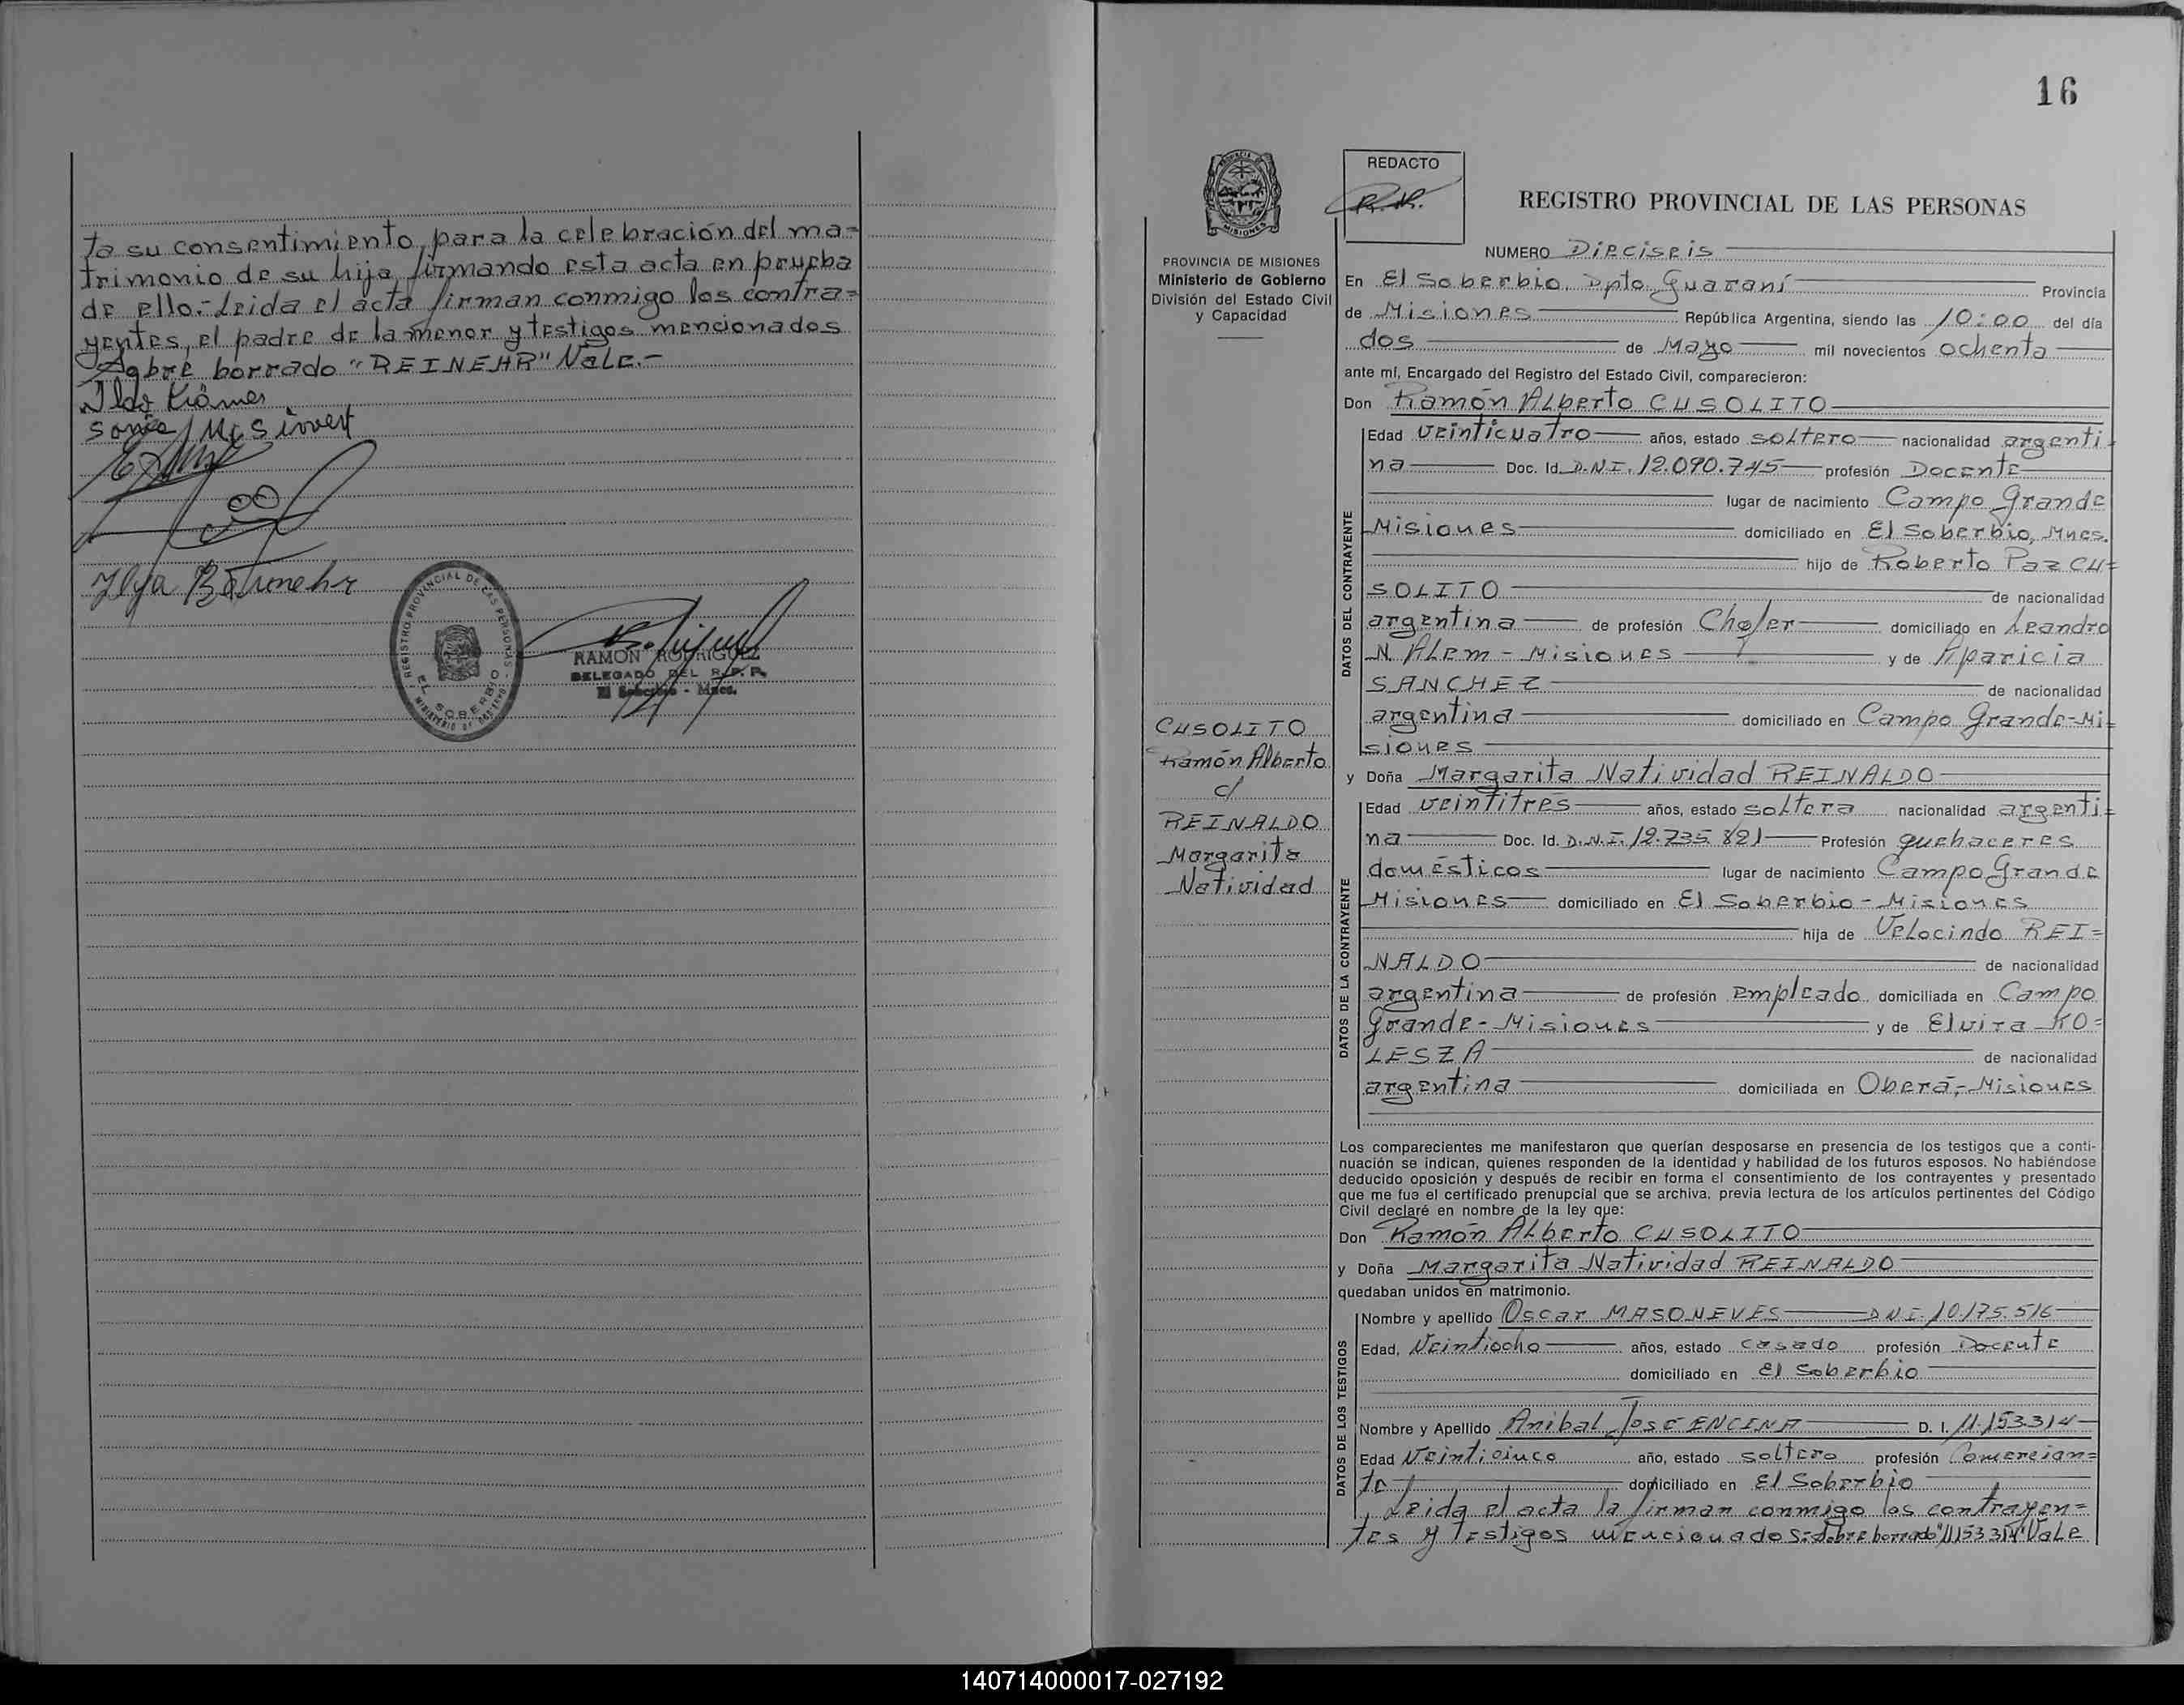 ta su consentimiento para la celebración del ma=
trimonio de su hija firmando esta acta en prueba
de ello.- Leida el acta firman conmigo los contra=
yentes, el padre de la menor y testigos mencionados
Sobre borrado "REINEHR" Vale.-
REGISTRO PROVINCIAL DE LAS PERSONAS
EL SOBERBIO
RAMON RODRIGUEZ
DELEGADO DEL R.P.P.
El Soberbio - Mnes.
16
PROVINCIA DE MISIONES
Ministerio de Gobierno
División del Estado Civil
y Capacidad
REDACTO
R.R.
REGISTRO PROVINCIAL DE LAS PERSONAS
NUMERO Dieciseis
En El Soberbio, Dpto. Guaraní Provincia
de Misiones República Argentina, siendo las 10:00 del día
dos de Mayo mil novecientos ochenta
ante mí, Encargado del Registro del Estado Civil, comparecieron:
Don Ramón Alberto CUSOLITO
DATOS DEL CONTRAYENTE
Edad veinticuatro años, estado soltero nacionalidad argenti=
na Doc. Id. D.N.I. 12.090.745 profesión Docente
lugar de nacimiento Campo Grande
Misiones domiciliado en El Soberbio, Mnes.
hijo de Roberto Paz CU=
SOLITO de nacionalidad
argentina de profesión Chofer domiciliado en Leandro
N. Alem - Misiones y de Aparicia
SANCHEZ de nacionalidad
argentina domiciliado en Campo Grande-Mi=
siones
CUSOLITO
Ramón Alberto
c/
REINALDO
Margarita
Natividad
y Doña Margarita Natividad REINALDO
DATOS DE LA CONTRAYENTE
Edad veintitrés años, estado soltera nacionalidad argenti=
na Doc. Id. D.N.I. 12.735.821 Profesión quehaceres
domésticos lugar de nacimiento Campo Grande
Misiones domiciliado en El Soberbio - Misiones
hija de Velocindo REI=
NALDO de nacionalidad
argentina de profesión empleado domiciliada en Campo
Grande - Misiones y de Elvira KO=
LESZA de nacionalidad
argentina domiciliada en Oberá,- Misiones
Los comparecientes me manifestaron que querían desposarse en presencia de los testigos que a conti-
nuación se indican, quienes responden de la identidad y habilidad de los futuros esposos. No habiéndose
deducido oposición y después de recibir en forma el consentimiento de los contrayentes y presentado
que me fue el certificado prenupcial que se archiva, previa lectura de los artículos pertinentes del Código
Civil declaré en nombre de la ley que:
Don Ramón Alberto CUSOLITO
y Doña Margarita Natividad REINALDO
quedaban unidos en matrimonio.
DATOS DE LOS TESTIGOS
Nombre y apellido Oscar MASONEVES DNI. 10.175.516
Edad, Veintiocho años, estado casado profesión Docente
domiciliado en El Soberbio
Nombre y Apellido Anibal Jose ENCINA D. I. 11.153.314
Edad Veinticinco año, estado soltero profesión Comercian=
te domiciliado en El Soberbio
Leida el acta la firman conmigo los contrayen=
tes y testigos mencionados:-Sobre borrado "11.153.314" Vale
140714000017-027192